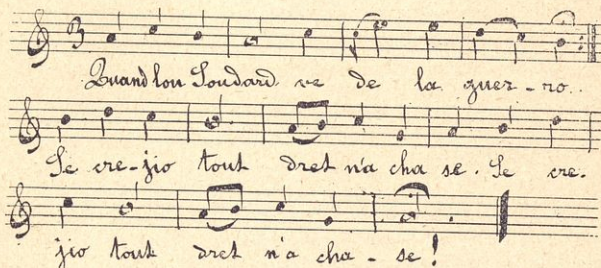 Quand lou Soudard ve de la guer-ro..
Se cre-jio tout dret n'a cha se. Se cre.
jio tout dret n'a cha-se!